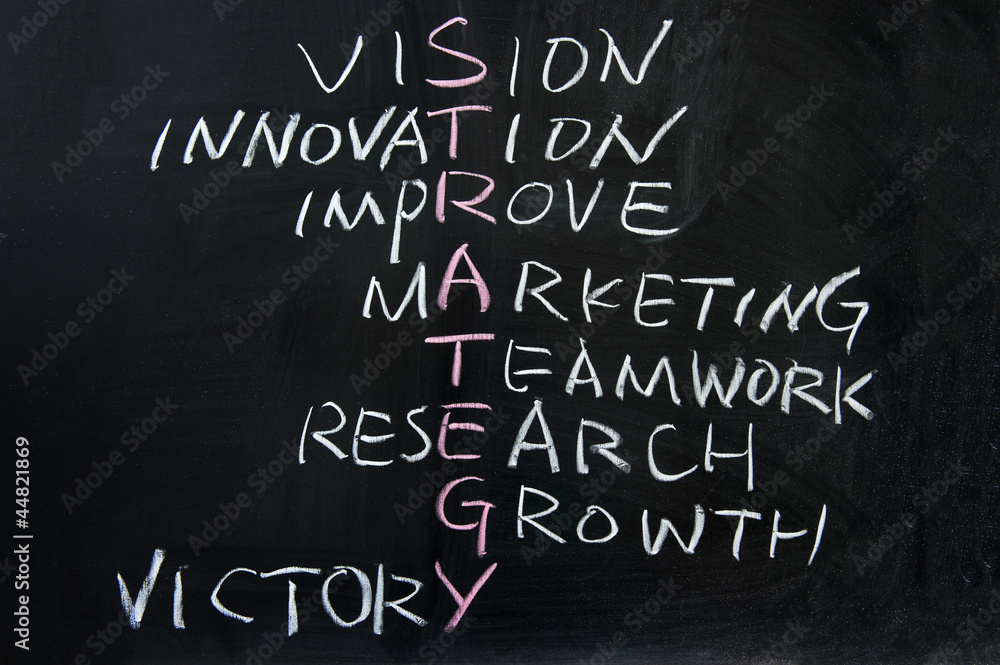 VISION
INNOVATION
IMPROVE
MARKETING
TEAMWORK
RESEARCH
GROWTH
VICTORY
Adobe Stock | #44821869